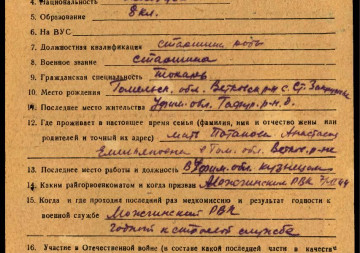 4. Национальность
5. Образование 8 кл.
6. На ВУС
7. Должностная квалификация старшина роты
8. Военное звание старшина
9. Гражданская специальность токарь
10. Место рождения обл. р-н с. Ст.
11. Последнее место жительства обл. р-н д.
12. Где проживает в настоящее время семья (фамилия, имя и отчество жены или
родителей и точный их адрес) мать Анастасия
Емельяновна в обл. р-не
13. Последнее место работы и должность В обл. кузнецом
14. Каким райгорвоенкоматом и когда призван Можгинский РВК
15. Когда и где проходил последний раз медкомиссию и результат годности к
военной службе Можгинский РВК
годный к строевой службе
16. Участие в Отечественной войне (в составе какой последней части в качестве